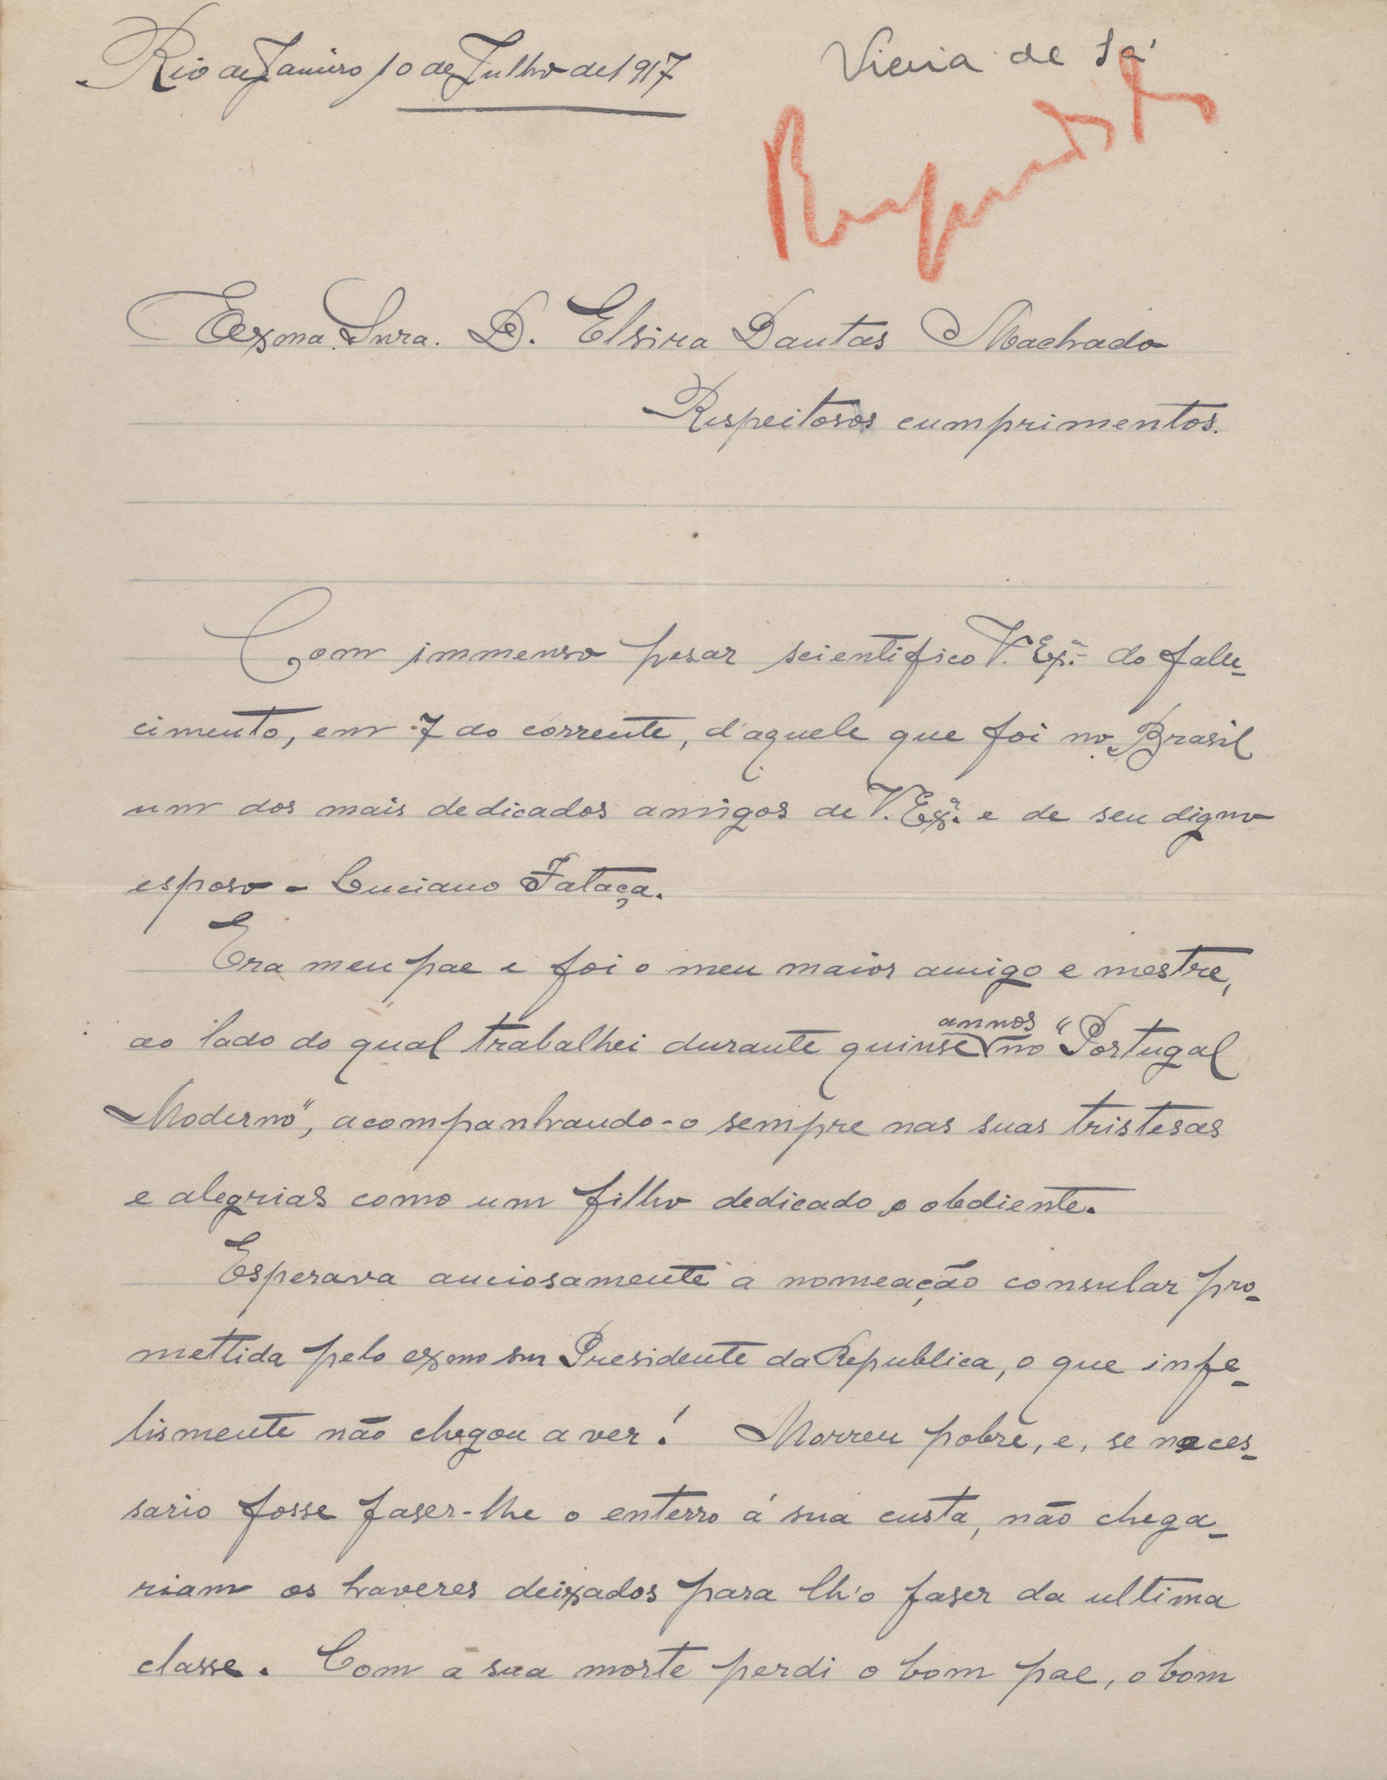 Rio de Janeiro 10 de Julho de 1917
Vieira de Sá
Respondido
Exma. Snra. D. Elzira Dantas Machado
Respeitosos cumprimentos.
Com immenso pesar scientifico V. Exª. do fale-
cimento, em 7 do corrente, d'aquele que foi no Brasil
um dos mais dedicados amigos de V. Exª. e de seu digno
esposo - Luciano Fataça.
Era meu pae e foi o meu maior amigo e mestre,
ao lado do qual trabalhei durante quinse annos no "Portugal
Moderno", acompanhando-o sempre nas suas tristesas
e alegrias como um filho dedicado e obediente.
Esperava anciosamente a nomeação consular pro-
mettida pelo exmo snr Presidente da Republica, o que infe-
lismente não chegou a ver! Morreu pobre, e, se neces-
sario fosse faser-lhe o enterro á sua custa, não chega-
riam os haveres deixados para lh'o faser da ultima
classe. Com a sua morte perdi o bom pae, o bom